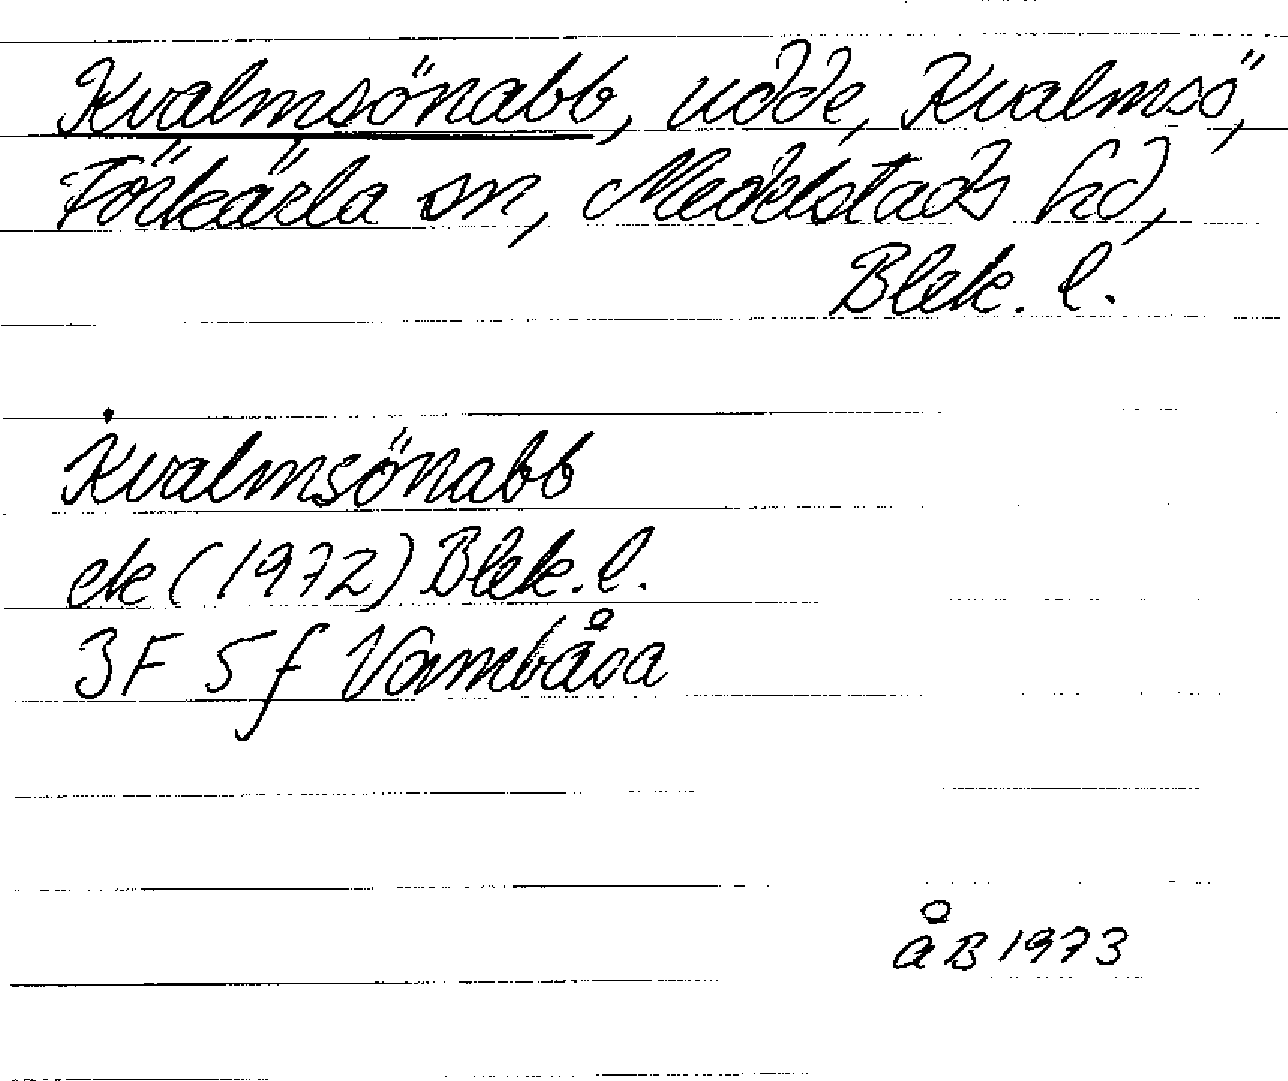 Kvalmsönabb, udde, Kvalmsö,
Förkärla sn, Medelstads hd,
Blek. l.
Kvalmsönabb
ek (1972) Blek. l.
3F 5f Vambåsa
åB 1973